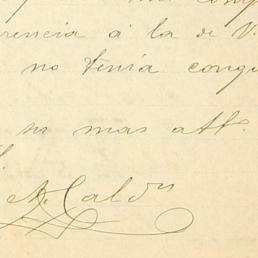 rencia á la de V.
no tenia conqu
su mas att.
A. Cald